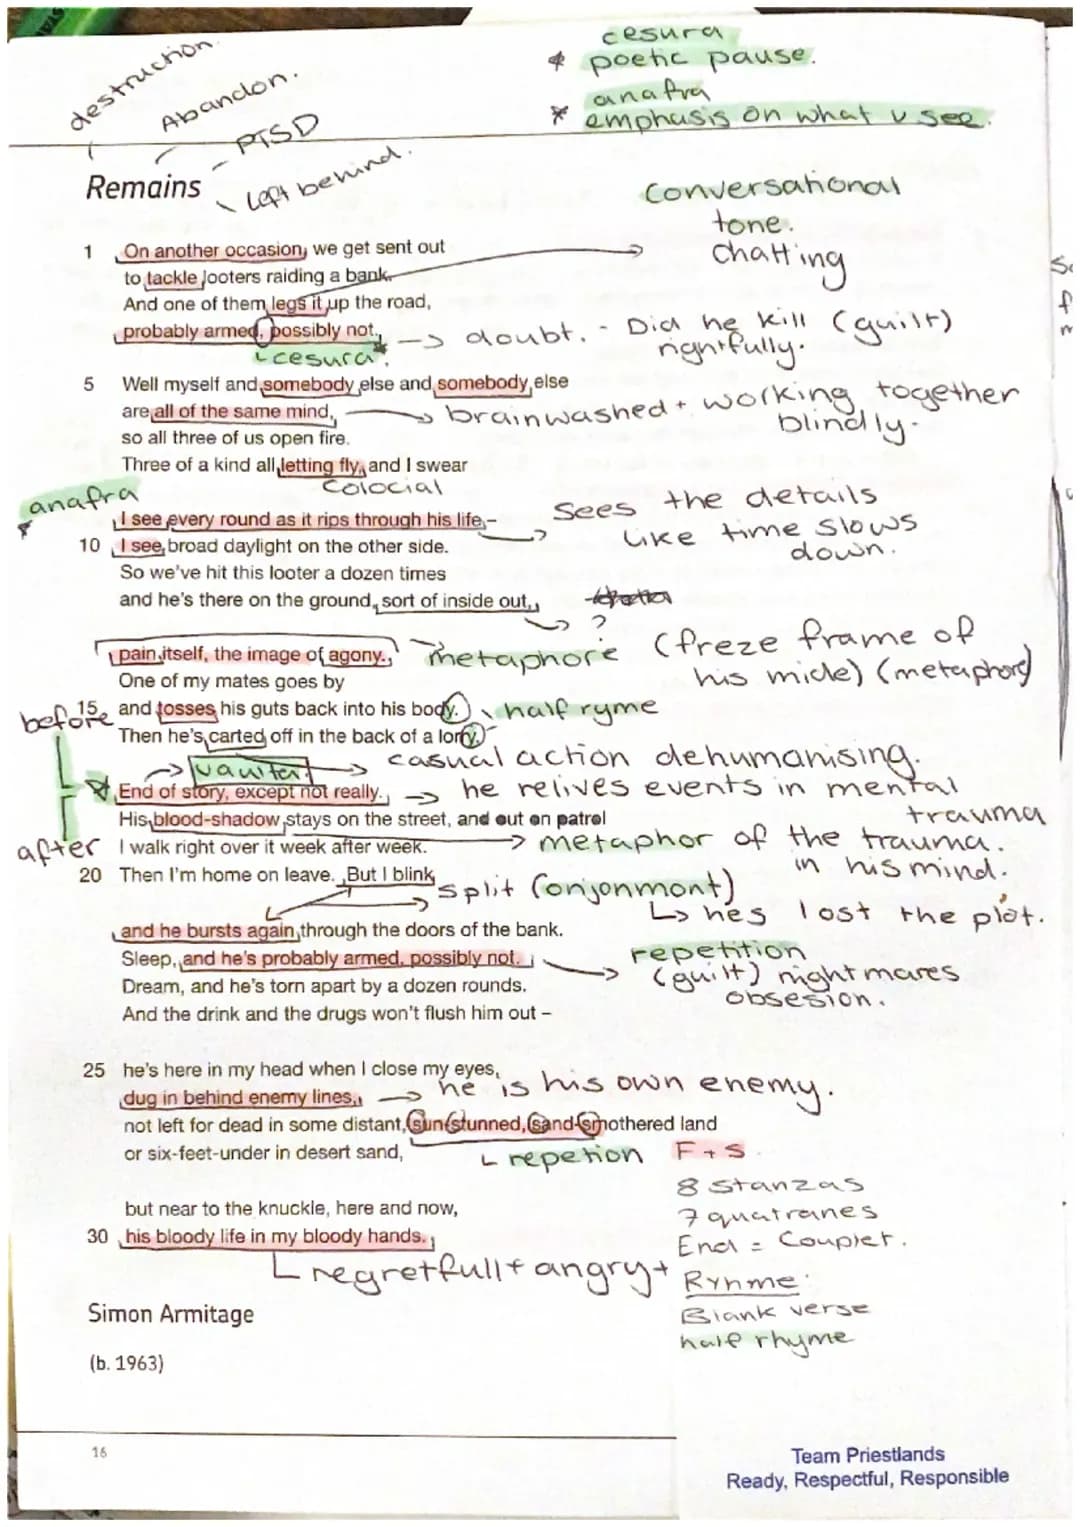 destruction.
Abandon.
PTSD
Left behind.
cesura
* poetic pause.
anafra
* emphasis on what u see.
Remains
Conversational
tone.
chatting
1 On another occasion, we get sent out
to tackle looters raiding a bank.
And one of them legs it up the road,
probably armed, possibly not.
doubt. - Did he kill (guilt)
rightfully.
cesura*
5 Well myself and somebody else and somebody else
are all of the same mind,
brainwashed + working together
blindly.
so all three of us open fire.
Three of a kind all letting fly, and I swear
Colocial
anafra
*
I see every round as it rips through his life –
Sees the details
like time slows
down.
10 I see broad daylight on the other side.
So we've hit this looter a dozen times
and he's there on the ground, sort of inside out,
?
pain itself, the image of agony.
metaphore (freze frame of
his mide) (metaphore)
One of my mates goes by
15 and tosses his guts back into his body.
half ryme
Then he's carted off in the back of a lorry.
before
casual action dehumanising.
End of story, except not really.
he relives events in mental
trauma
His blood-shadow stays on the street, and out on patrol
after
I walk right over it week after week.
metaphor of the trauma.
in his mind.
20 Then I'm home on leave. But I blink
split (onjonmont)
hes lost the plot.
and he bursts again through the doors of the bank.
Sleep, and he's probably armed, possibly not.
repetition
(guilt) nightmares
obsesion.
Dream, and he's torn apart by a dozen rounds.
And the drink and the drugs won't flush him out –
25 he's here in my head when I close my eyes,
dug in behind enemy lines,
he is his own enemy.
not left for dead in some distant, sun-stunned, sand-smothered land
or six-feet-under in desert sand,
repetion
F + S
8 stanzas
7 quatranes
End = Couplet.
but near to the knuckle, here and now,
30 his bloody life in my bloody hands.
regretfull + angry +
Rynme:
Blank verse
half rhyme
Simon Armitage
(b. 1963)
16
Team Priestlands
Ready, Respectful, Responsible